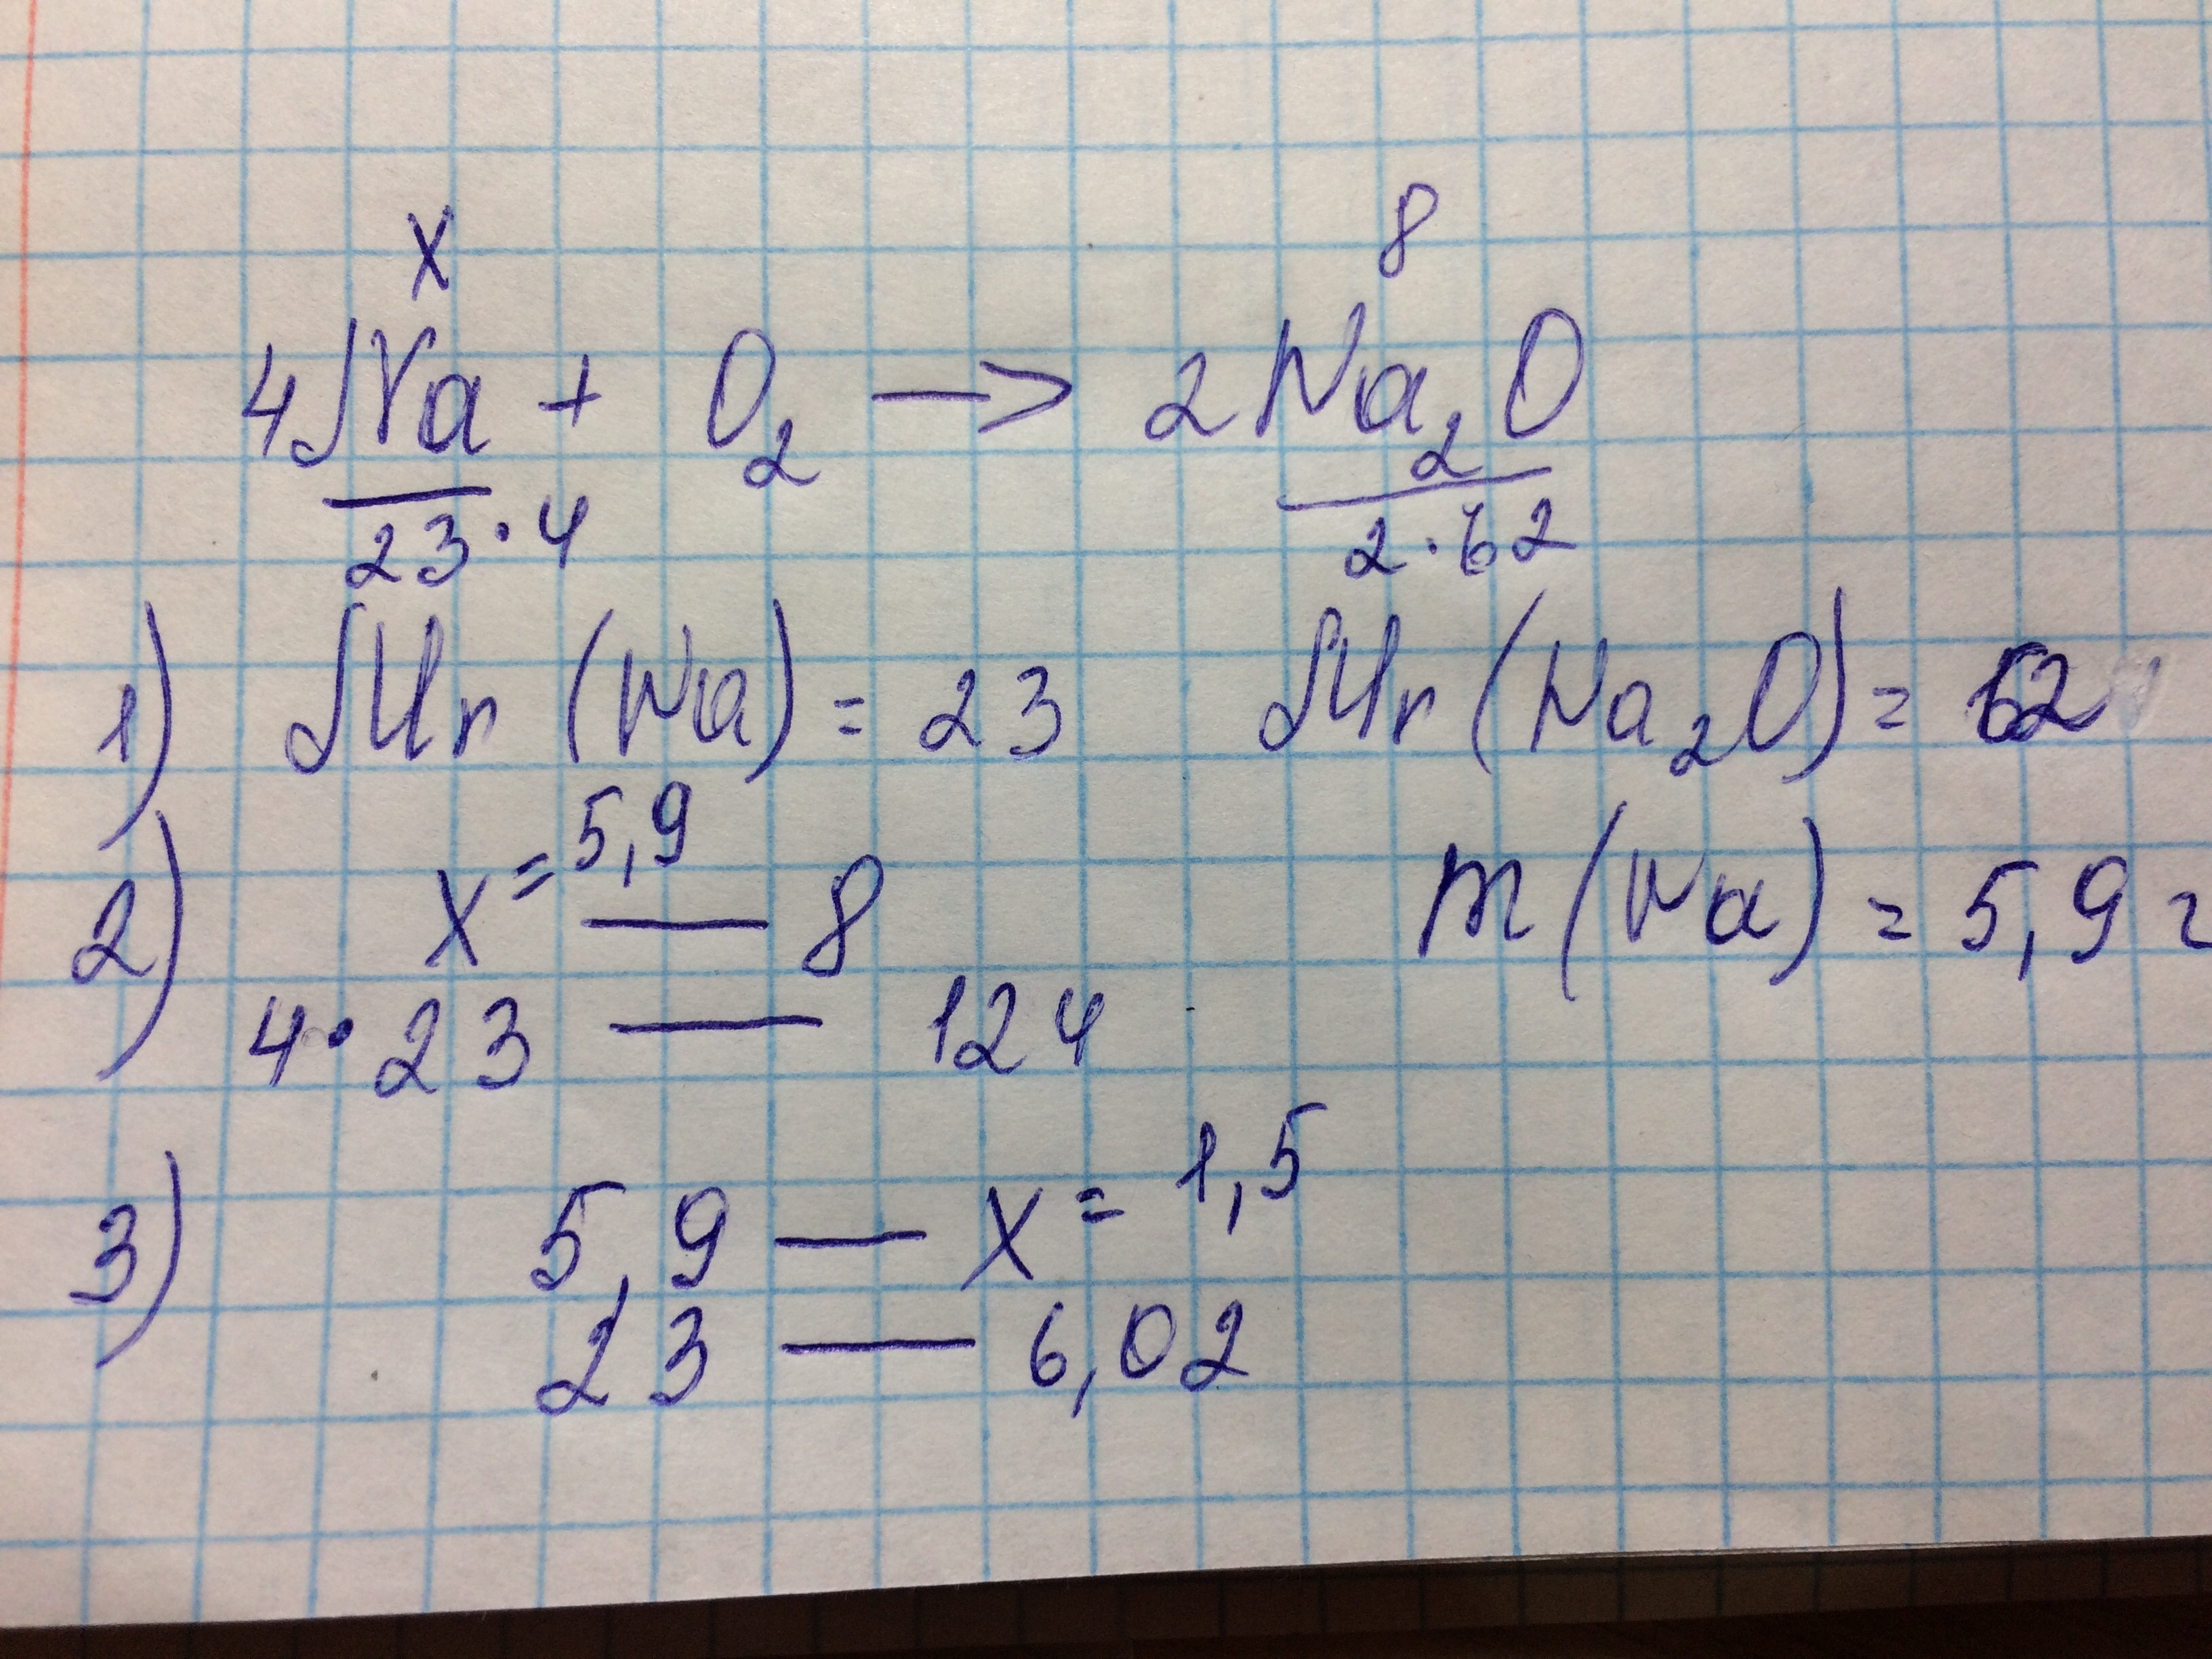 x 8
4Na + O₂ —> 2Na₂O
23·4 2·62
1) Mr (Na) = 23 Mr (Na₂O) = 62
2) x = 5,9 — 8 m (Na) = 5,9 г
4·23 — 124
3) 5,9 — x = 1,5
23 — 6,02